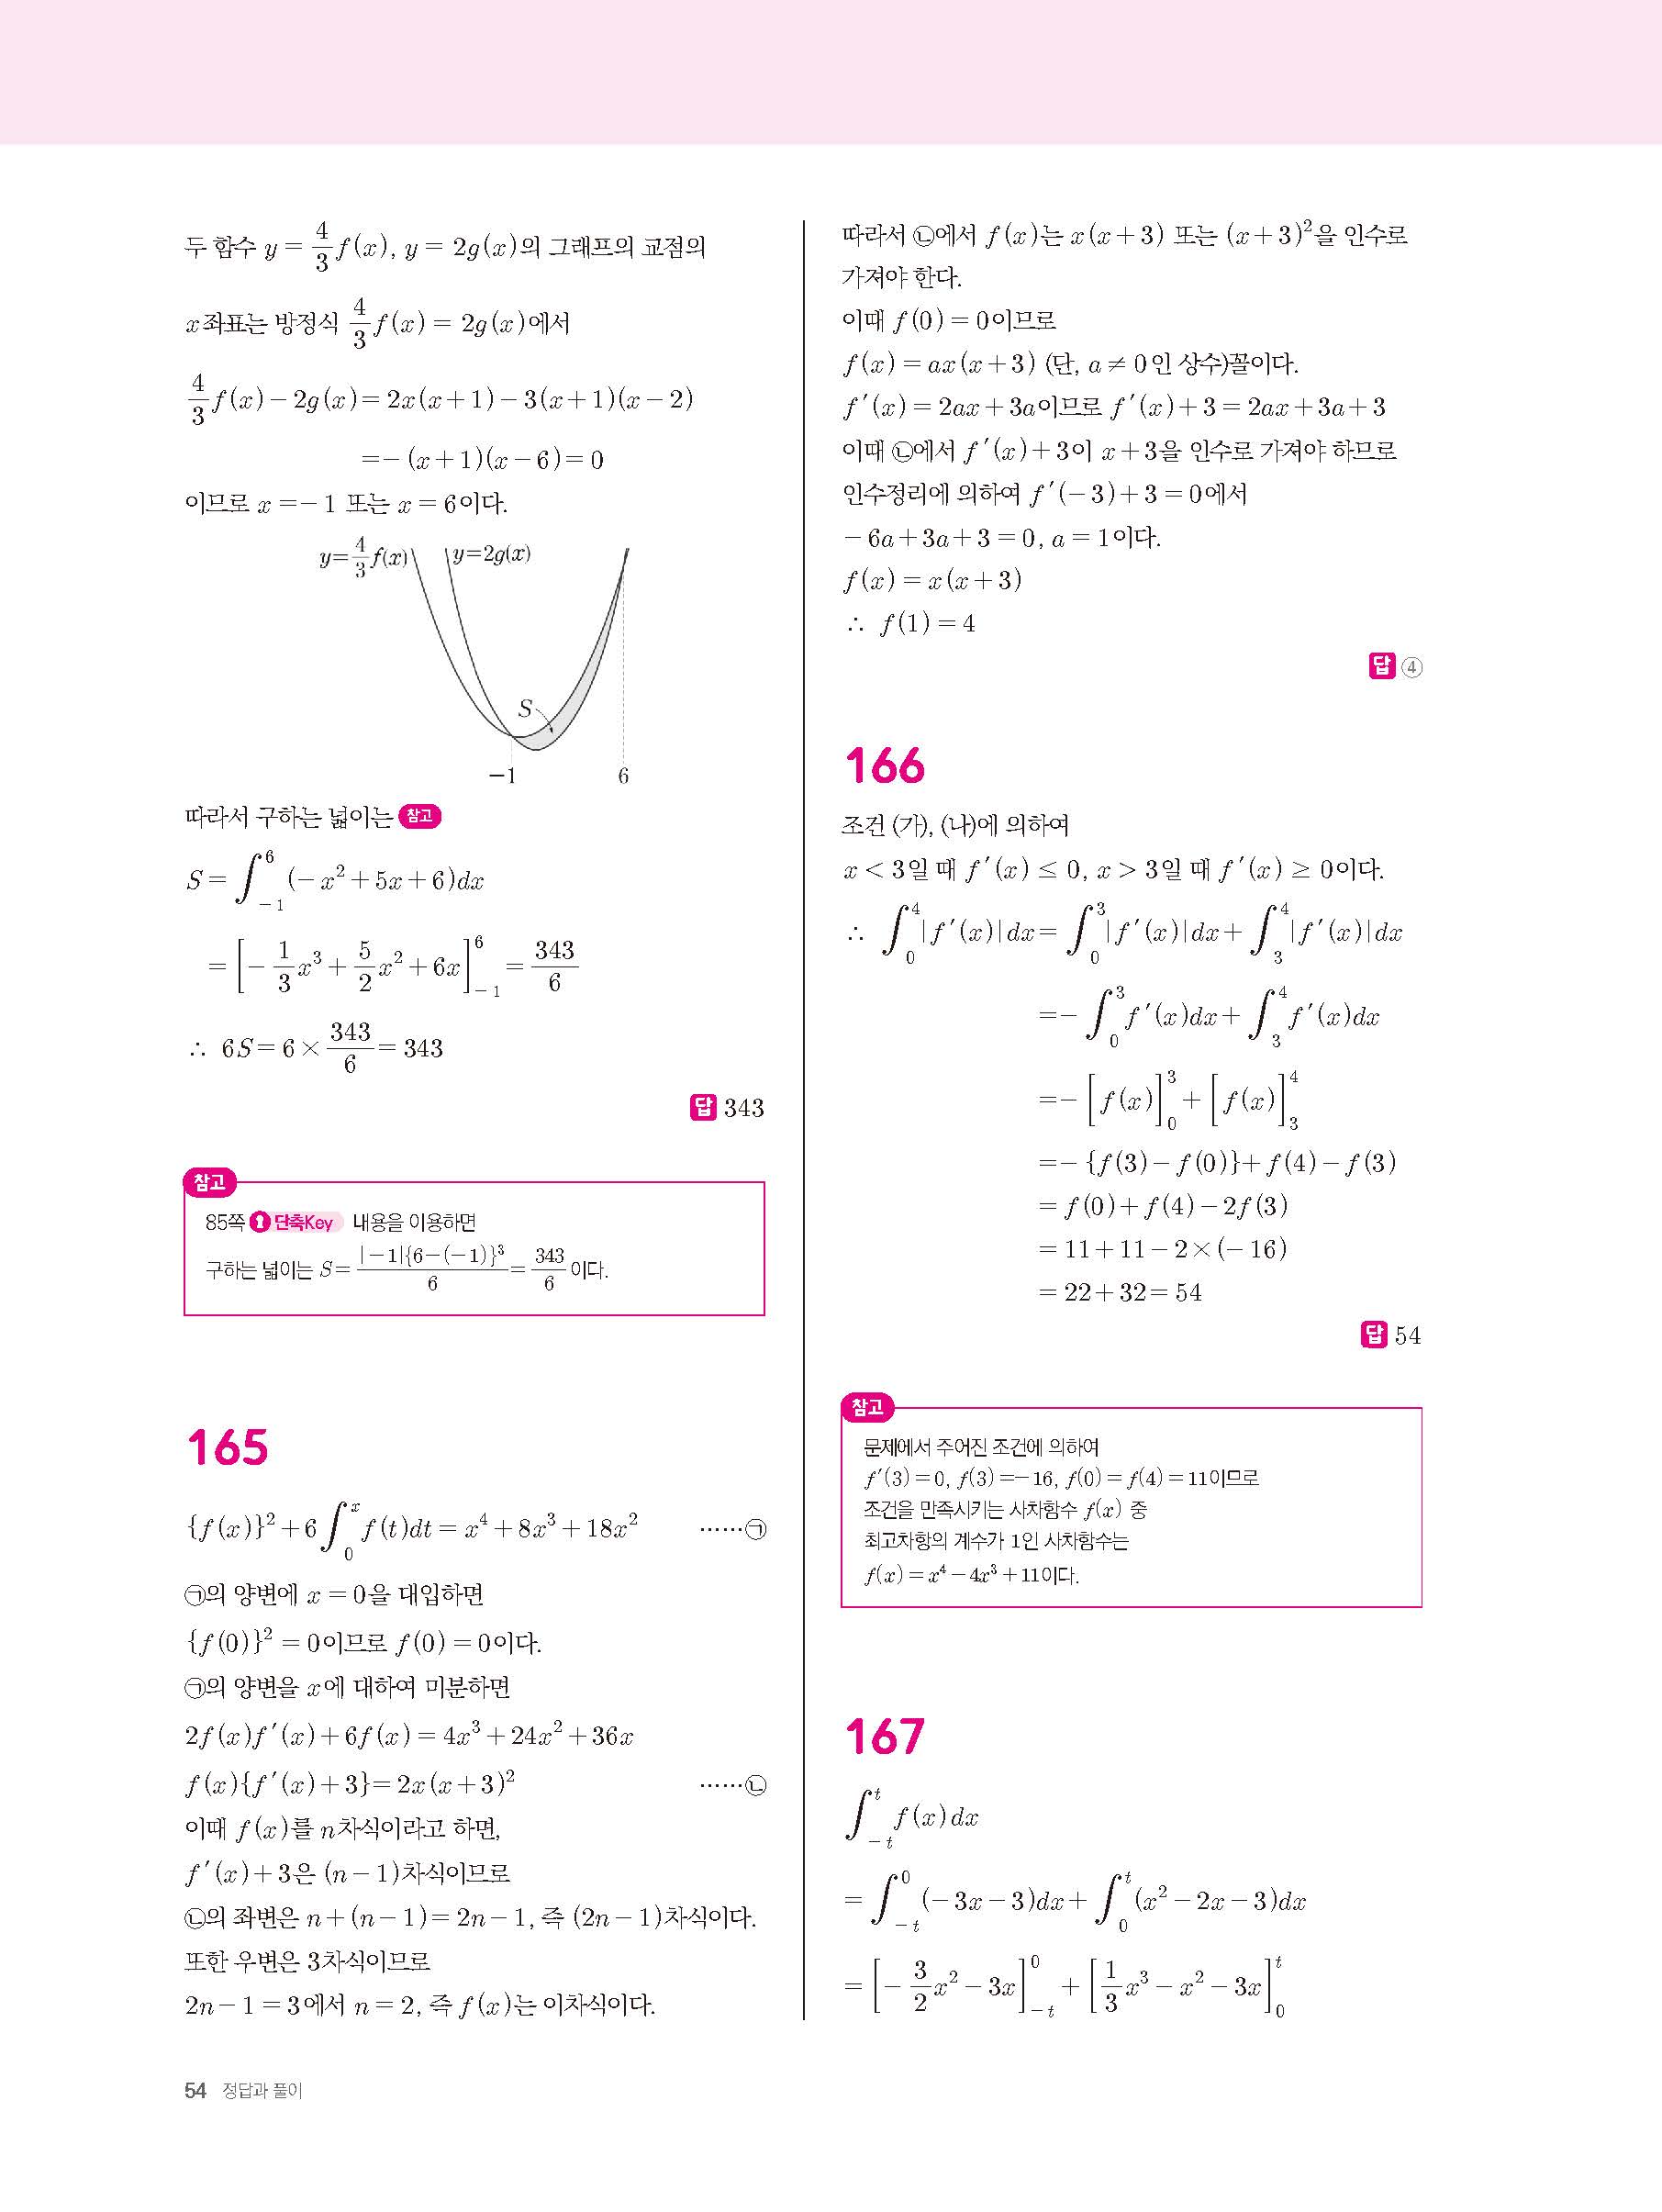 두 함수 y = 4/3 f(x), y = 2g(x)의 그래프의 교점의
x좌표는 방정식 4/3 f(x) = 2g(x)에서
4/3 f(x) − 2g(x) = 2x(x+1) − 3(x+1)(x−2)
= −(x+1)(x−6) = 0
이므로 x = −1 또는 x = 6이다.
y=4/3 f(x) y=2g(x)
S
−1 6
따라서 구하는 넓이는 참고
S = ∫_{−1}^{6} (−x² + 5x + 6)dx
= [−1/3 x³ + 5/2 x² + 6x]_{−1}^{6} = 343/6
∴ 6S = 6 × 343/6 = 343
답 343
참고
85쪽 단축Key 내용을 이용하면
구하는 넓이는 S = |−1|{6−(−1)}³/6 = 343/6 이다.
165
{f(x)}² + 6∫_{0}^{x} f(t)dt = x⁴ + 8x³ + 18x² ……㉠
㉠의 양변에 x = 0을 대입하면
{f(0)}² = 0이므로 f(0) = 0이다.
㉠의 양변을 x에 대하여 미분하면
2f(x)f′(x) + 6f(x) = 4x³ + 24x² + 36x
f(x){f′(x)+3} = 2x(x+3)² ……㉡
이때 f(x)를 n차식이라고 하면,
f′(x)+3은 (n−1)차식이므로
㉡의 좌변은 n+(n−1) = 2n−1, 즉 (2n−1)차식이다.
또한 우변은 3차식이므로
2n−1 = 3에서 n = 2, 즉 f(x)는 이차식이다.
따라서 ㉡에서 f(x)는 x(x+3) 또는 (x+3)²을 인수로
가져야 한다.
이때 f(0) = 0이므로
f(x) = ax(x+3) (단, a ≠ 0인 상수)꼴이다.
f′(x) = 2ax+3a이므로 f′(x)+3 = 2ax+3a+3
이때 ㉡에서 f′(x)+3이 x+3을 인수로 가져야 하므로
인수정리에 의하여 f′(−3)+3 = 0에서
−6a+3a+3 = 0, a = 1이다.
f(x) = x(x+3)
∴ f(1) = 4
답 ④
166
조건 (가), (나)에 의하여
x < 3일 때 f′(x) ≤ 0, x > 3일 때 f′(x) ≥ 0이다.
∴ ∫_{0}^{4} |f′(x)|dx = ∫_{0}^{3} |f′(x)|dx + ∫_{3}^{4} |f′(x)|dx
= −∫_{0}^{3} f′(x)dx + ∫_{3}^{4} f′(x)dx
= −[f(x)]_{0}^{3} + [f(x)]_{3}^{4}
= −{f(3)−f(0)}+f(4)−f(3)
= f(0)+f(4)−2f(3)
= 11+11−2×(−16)
= 22+32 = 54
답 54
참고
문제에서 주어진 조건에 의하여
f′(3) = 0, f(3) = −16, f(0) = f(4) = 11이므로
조건을 만족시키는 사차함수 f(x) 중
최고차항의 계수가 1인 사차함수는
f(x) = x⁴ − 4x³ + 11이다.
167
∫_{−t}^{t} f(x)dx
= ∫_{−t}^{0} (−3x−3)dx + ∫_{0}^{t} (x²−2x−3)dx
= [−3/2 x² − 3x]_{−t}^{0} + [1/3 x³ − x² − 3x]_{0}^{t}
54 정답과 풀이